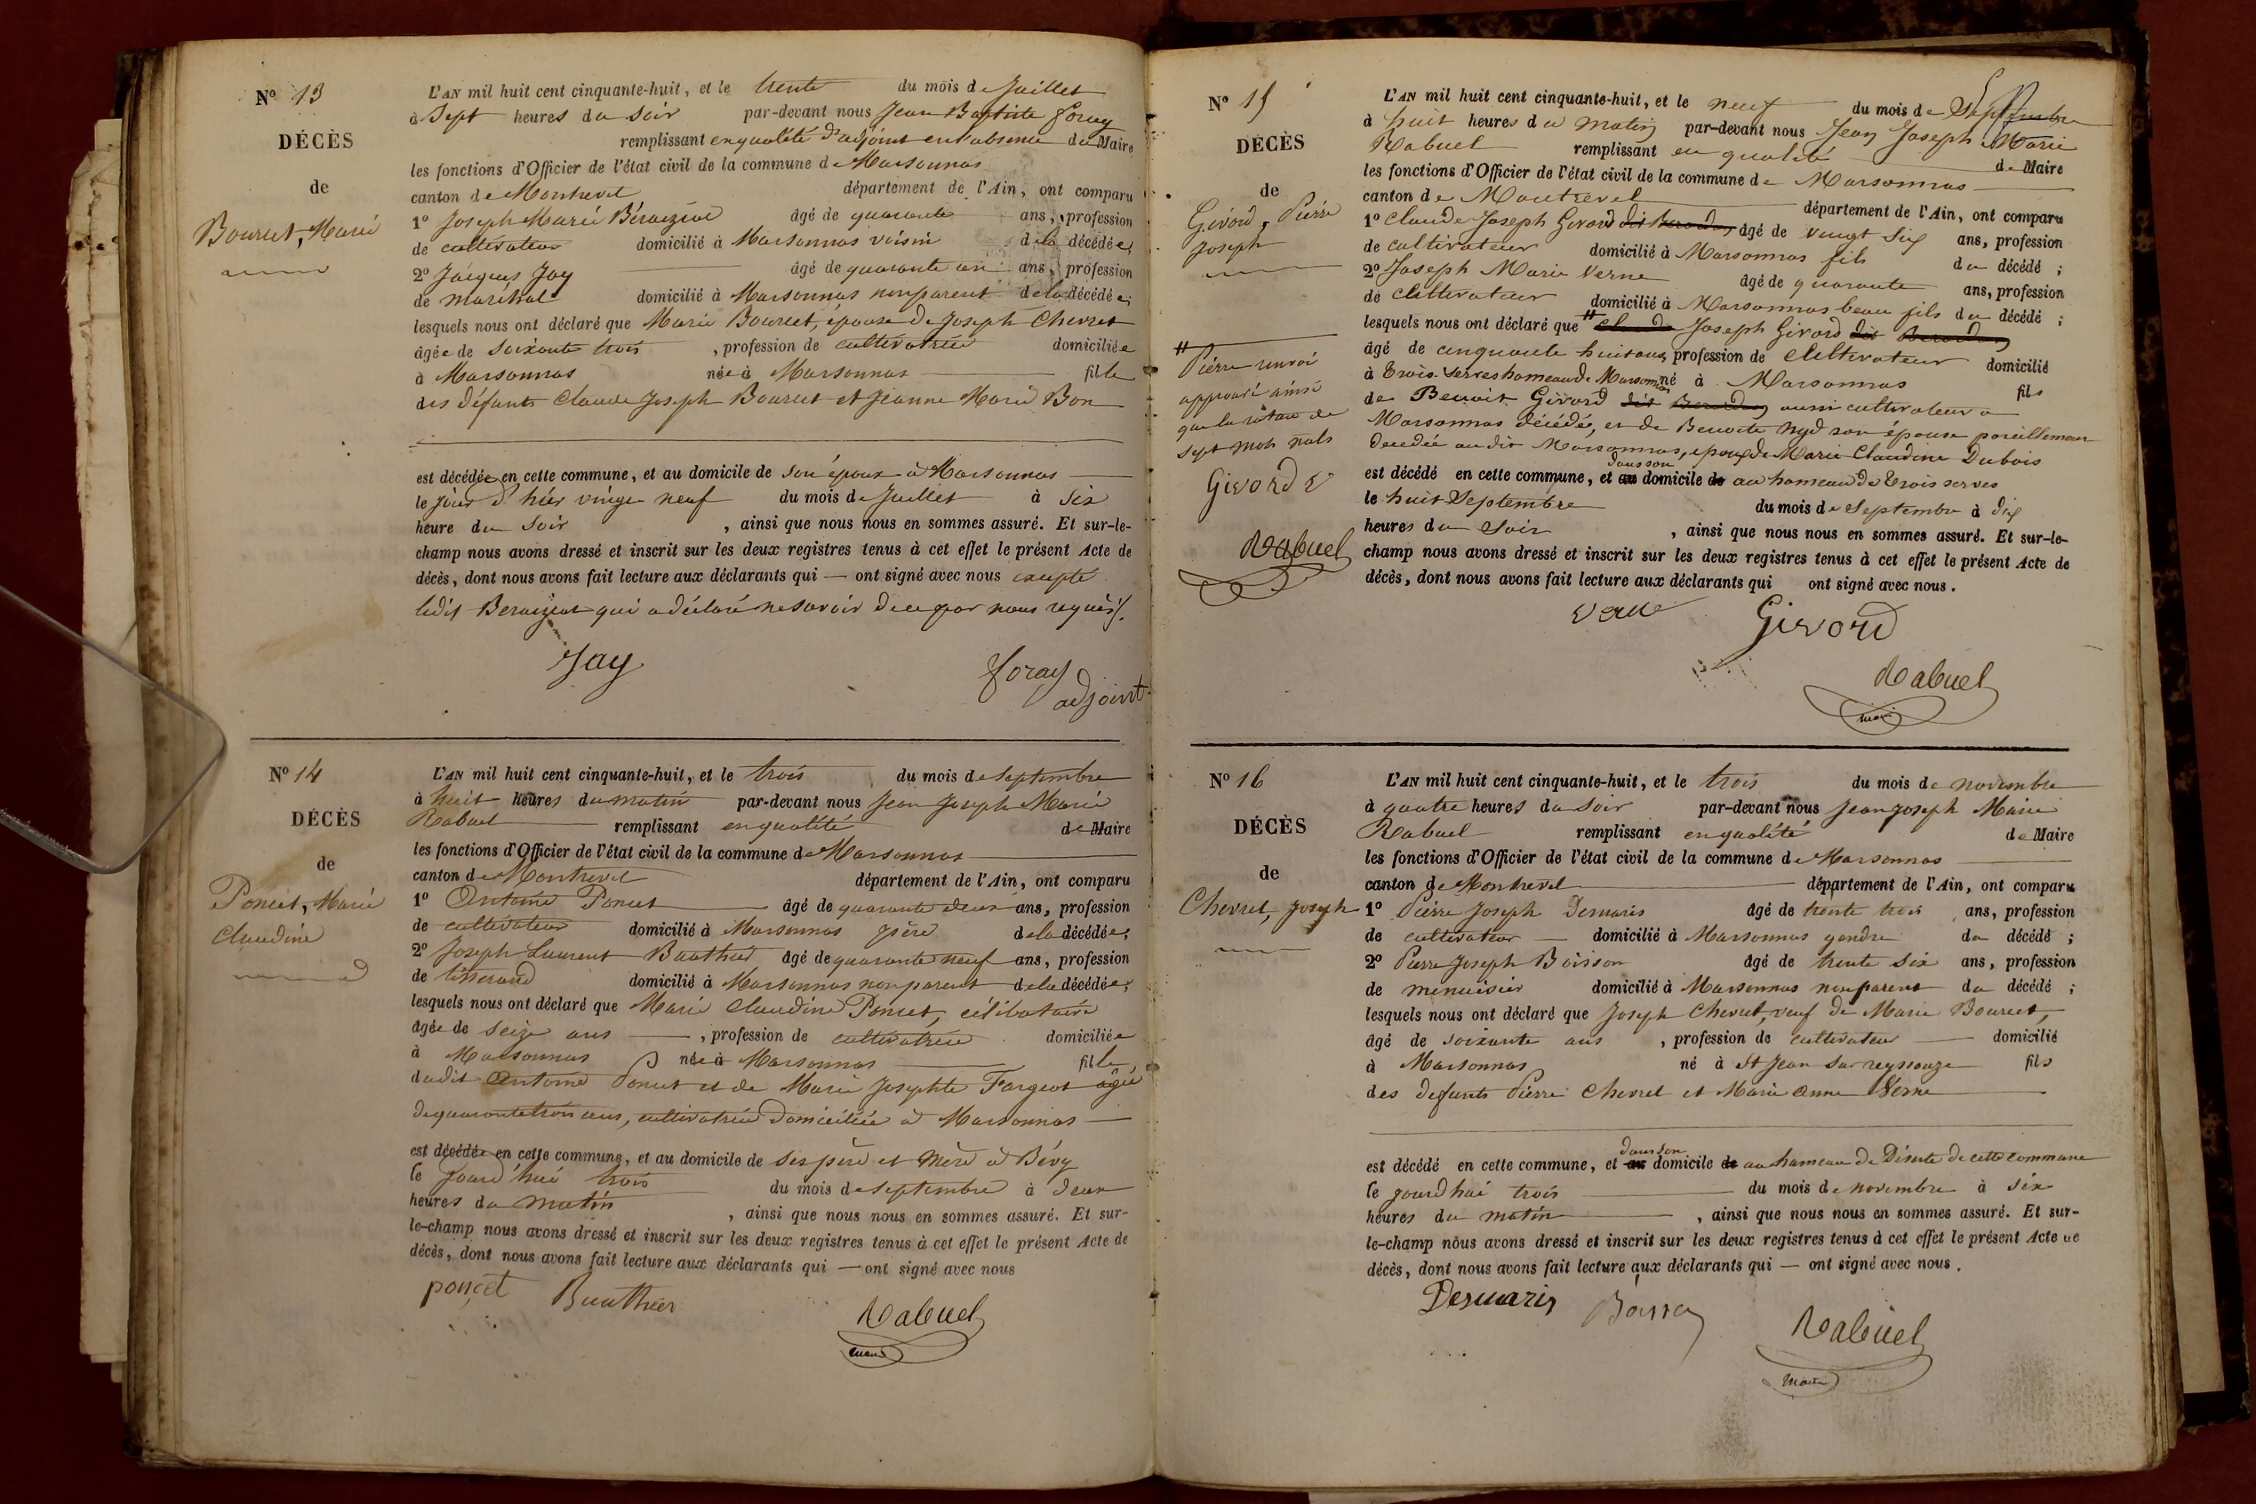 Nº 13
DÉCÈS
de
Bourcet, Marie
L'AN mil huit cent cinquante-huit, et le trente du mois de Juillet
à Sept heures du Soir par-devant nous Jean Baptiste foray
remplissant en qualité d'adjoint en l'absence du Maire
les fonctions d'Officier de l'état civil de la commune de Marsonnas
canton de Montrevel département de l'Ain, ont comparu
1º Joseph Marie Béraizeat âgé de quarante ans, profession
de cultivateur domicilié à Marsonnas voisin de la décédée;
2º Jacques Jay âgé de quarante un ans, profession
de maréchal domicilié à Marsonnas non parent de la décédée;
lesquels nous ont déclaré que Marie Bourcet, épouse de Joseph Chevret
âgée de soixante trois , profession de cultivatrice domiciliée
à Marsonnas née à Marsonnas fille
des défunts Claude Joseph Bourcet et Jeanne Marie Bon
est décédée en cette commune, et au domicile de son époux à Marsonnas
le jour d'hier vingt neuf du mois de Juillet à six
heure du Soir , ainsi que nous nous en sommes assuré. Et sur-le-
champ nous avons dressé et inscrit sur les deux registres tenus à cet effet le présent Acte de
décès, dont nous avons fait lecture aux déclarants qui — ont signé avec nous excepté
ledit Beraizeat qui a déclaré ne savoir de ce par nous requis.
Jay
foray
adjoint
Nº 14
DÉCÈS
de
Poncet, Marie
Claudine
L'AN mil huit cent cinquante-huit, et le trois du mois de septembre
à huit heures du matin par-devant nous Jean Joseph Marie
Rabuel remplissant en qualité de Maire
les fonctions d'Officier de l'état civil de la commune de Marsonnas
canton de Montrevel département de l'Ain, ont comparu
1º Antoine Poncet âgé de quarante deux ans, profession
de cultivateur domicilié à Marsonnas père de la décédée;
2º Joseph Laurent Buathier âgé de quarante neuf ans, profession
de tisserand domicilié à Marsonnas non parent de la décédée;
lesquels nous ont déclaré que Marie Claudine Poncet, célibataire
âgée de seize ans , profession de cultivatrice domiciliée
à Marsonnas née à Marsonnas fille
dudit Antoine Poncet et de Marie Josephte Fargeot âgée
de quarante trois ans, cultivatrice domiciliée à Marsonnas
est décédée en cette commune, et au domicile de ses père et mère à Bévy
le jourd'hui trois du mois de septembre à deux
heures du matin , ainsi que nous nous en sommes assuré. Et sur-
le-champ nous avons dressé et inscrit sur les deux registres tenus à cet effet le présent Acte de
décès, dont nous avons fait lecture aux déclarants qui — ont signé avec nous
poncet Buathier
Rabuel
maire
Nº 15
DÉCÈS
de
Givord, Pierre
Joseph
# Pierre renvoi
approuvé ainsi
que la rature de
sept mots nuls
Givord V
Rabuel
L'AN mil huit cent cinquante-huit, et le neuf du mois de Septembre
à huit heures du matin par-devant nous Jean Joseph Marie
Rabuel remplissant en qualité de Maire
les fonctions d'Officier de l'état civil de la commune de Marsonnas
canton de Montrevel département de l'Ain, ont comparu
1º Claude Joseph Givord dit âgé de vingt six ans, profession
de cultivateur domicilié à Marsonnas fils du décédé ;
2º Joseph Marie Verne âgé de quarante ans, profession
de Cultivateur domicilié à Marsonnas beau fils du décédé ;
lesquels nous ont déclaré que # Claude Joseph Givord dit
âgé de cinquante huit ans, profession de Cultivateur domicilié
à Trois-Serves hameau de Marsonnas né à Marsonnas fils
de Benoit Givord dit aussi cultivateur à
Marsonnas décédé, et de Benoite Nyd son épouse pareillement
décédée audit Marsonnas, epoux de Marie Claudine Dubois
est décédé en cette commune, et au dans son domicile de au hameau de Trois serves
le huit Septembre du mois de Septembre à dix
heures du Soir , ainsi que nous nous en sommes assuré. Et sur-le-
champ nous avons dressé et inscrit sur les deux registres tenus à cet effet le présent Acte de
décès, dont nous avons fait lecture aux déclarants qui ont signé avec nous.
Givord
Rabuel
maire
Nº 16
DÉCÈS
de
Chevret, Joseph
L'AN mil huit cent cinquante-huit, et le trois du mois de novembre
à quatre heures du soir par-devant nous Jean Joseph Marie
Rabuel remplissant en qualité de Maire
les fonctions d'Officier de l'état civil de la commune de Marsonnas
canton de Montrevel département de l'Ain, ont comparu
1º Pierre Joseph Desmaris âgé de trente trois ans, profession
de cultivateur domicilié à Marsonnas gendre du décédé ;
2º Pierre Joseph Boisson âgé de trente six ans, profession
de menuisier domicilié à Marsonnas non parent du décédé ;
lesquels nous ont déclaré que Joseph Chevret, veuf de Marie Bourcet,
âgé de soixante ans , profession de cultivateur domicilié
à Marsonnas né à St Jean sur reyssouze fils
des défunts Pierre Chevret et Marie Anne Verne
est décédé en cette commune, et au dans son domicile de au hameau de Diserte de cette commune
le jourd'hui trois du mois de novembre à six
heures du matin , ainsi que nous nous en sommes assuré. Et sur-
le-champ nous avons dressé et inscrit sur les deux registres tenus à cet effet le présent Acte de
décès, dont nous avons fait lecture aux déclarants qui — ont signé avec nous.
Desmaris
Rabuel
maire